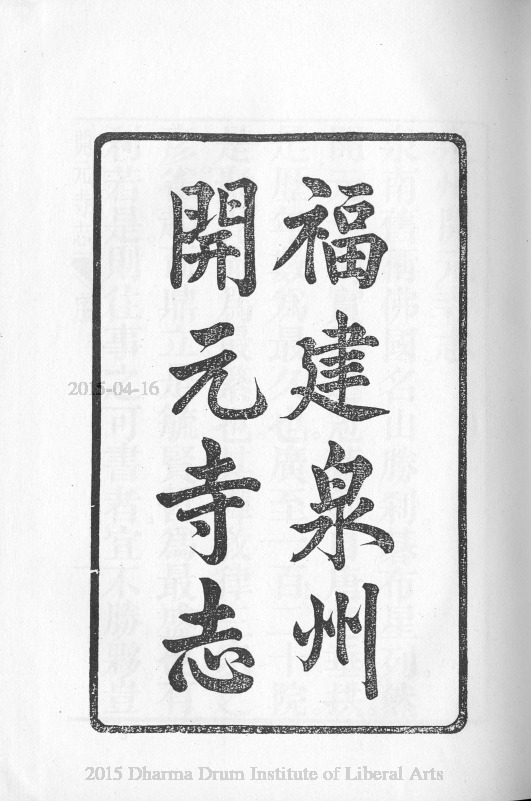 福建泉州
開元寺志
2015-04-16
2015 Dharma Drum Institute of Liberal Arts